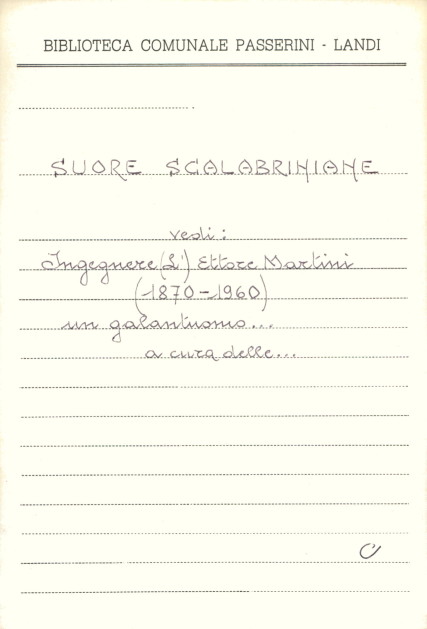 BIBLIOTECA COMUNALE PASSERINI - LANDI
SUORE SCALABRINIANE
vedi:
Ingegnere (L') Ettore Martini
(1870-1960)
un galantuomo...
a cura delle...